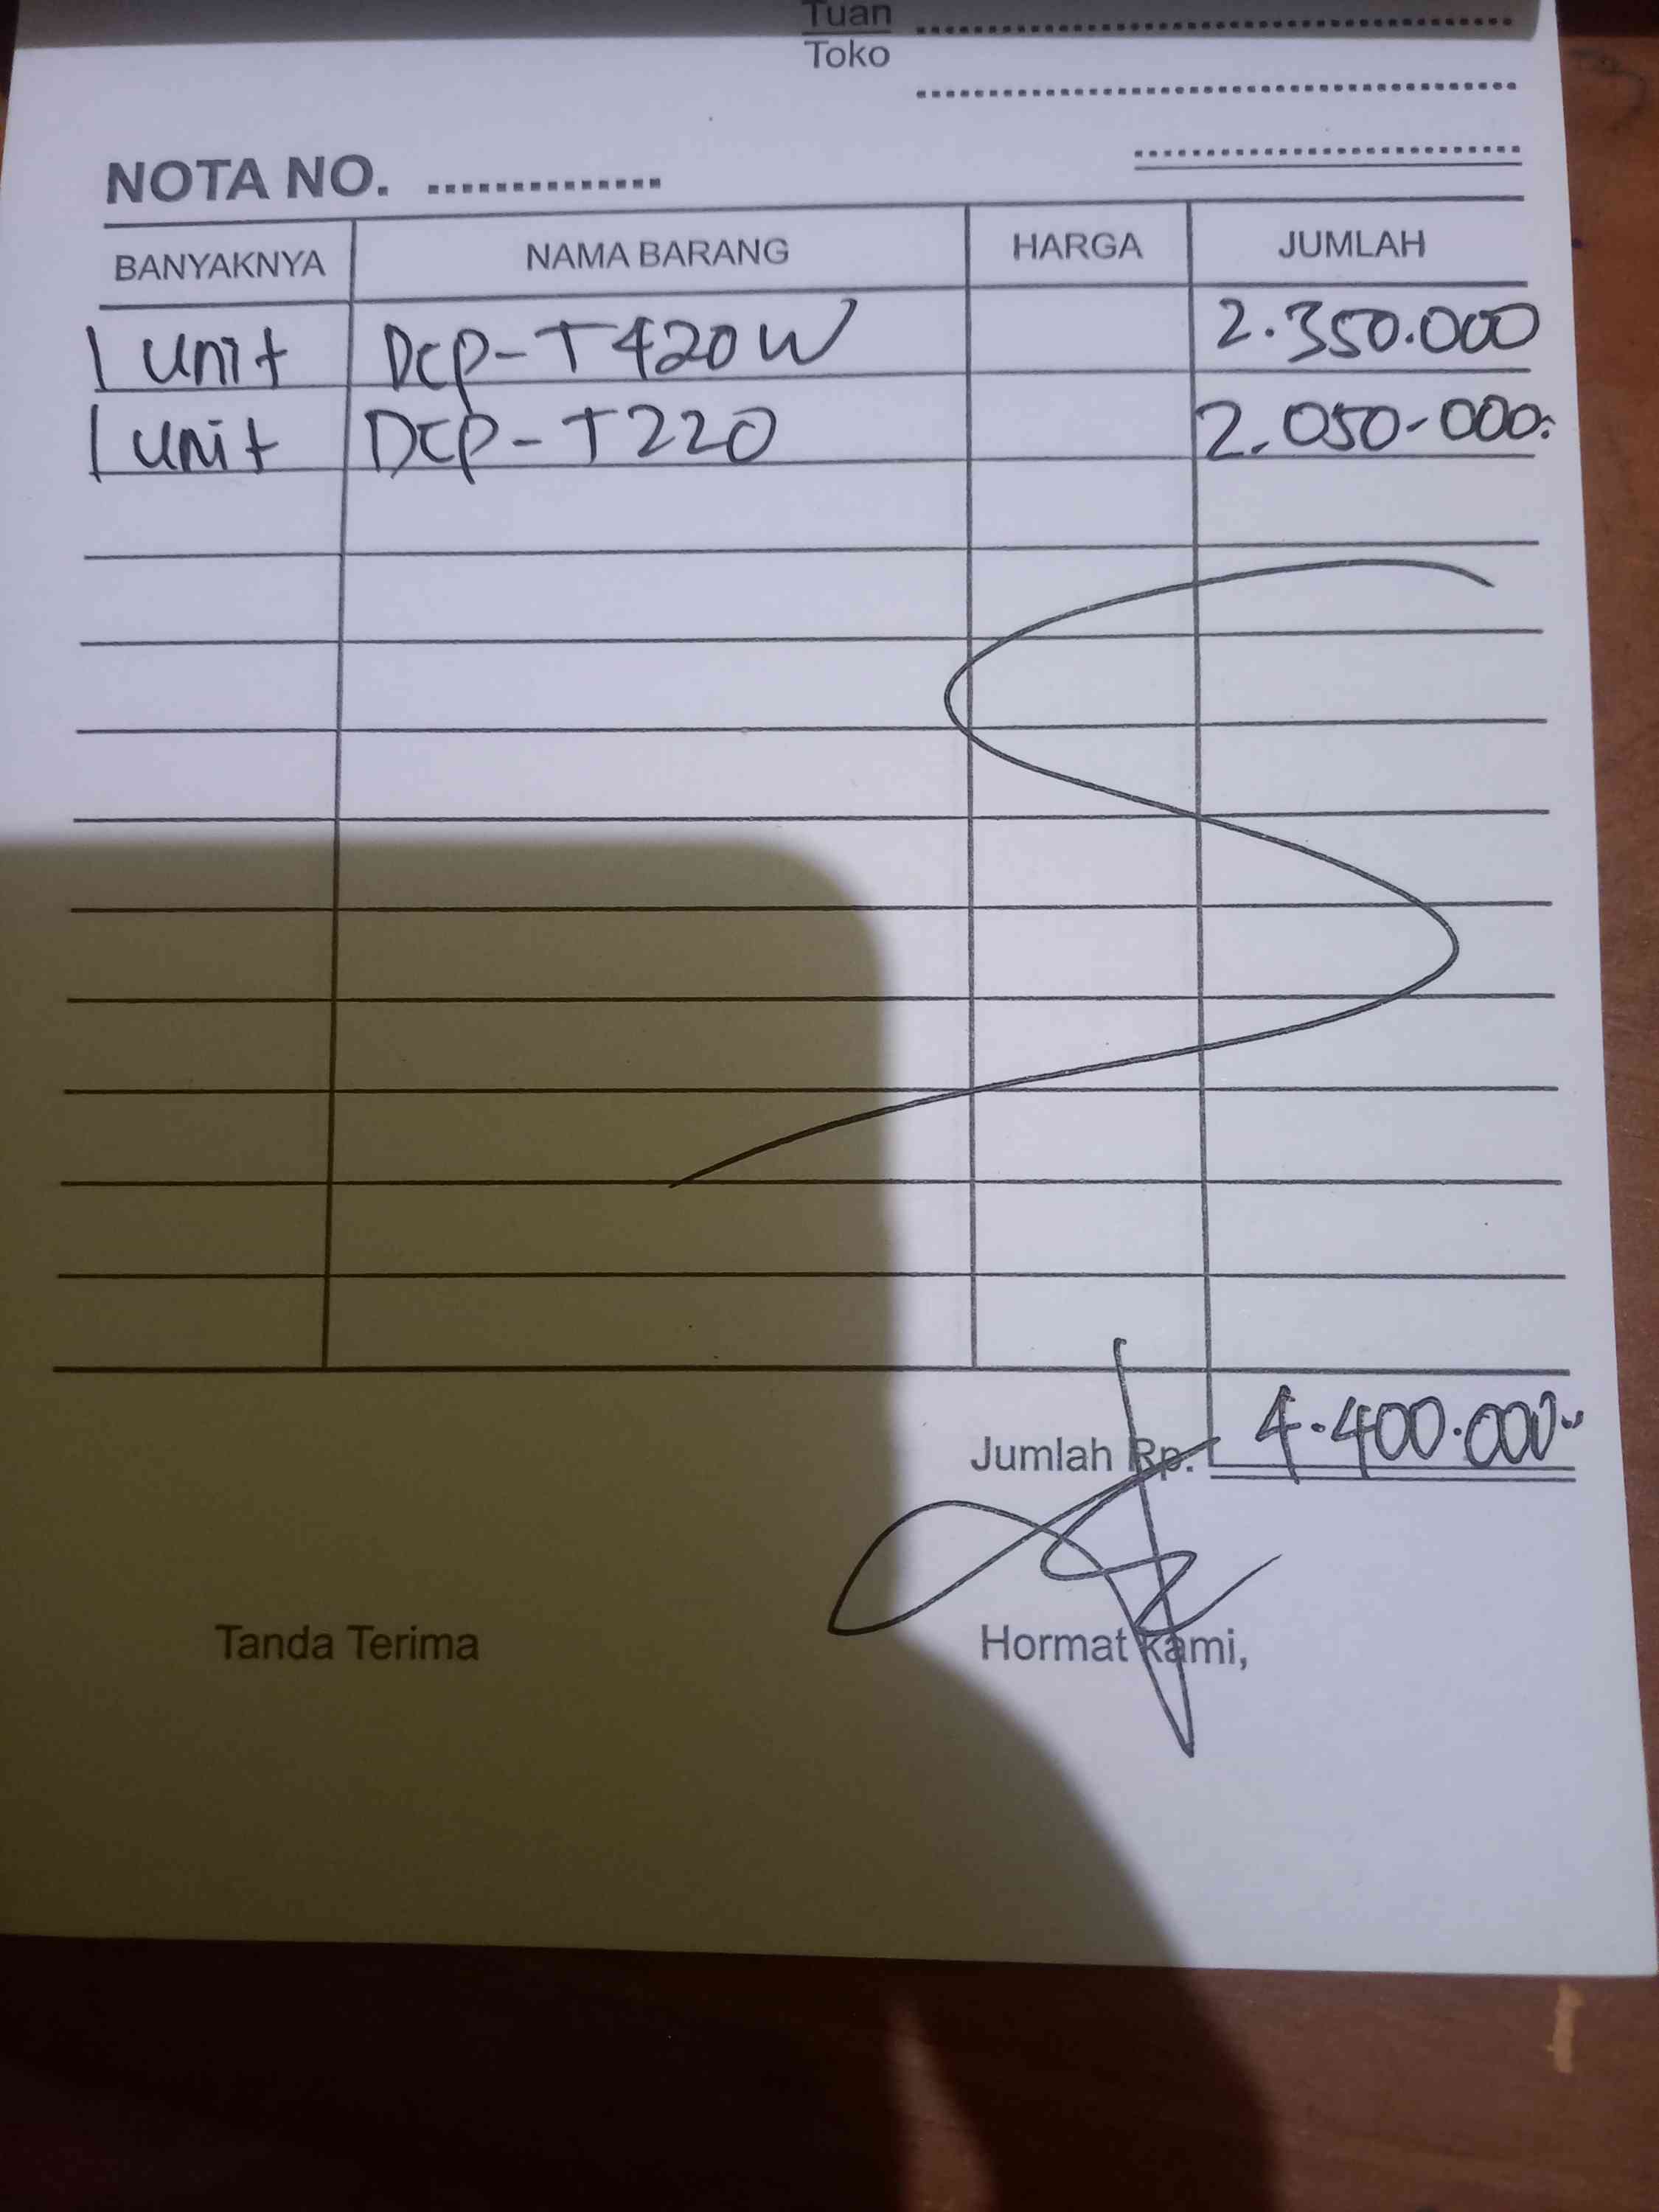 Tuan
Toko
NOTA NO.
BANYAKNYA NAMA BARANG HARGA JUMLAH
1 unit DCP-T420W 2.350.000
1 unit DCP-T220 2.050.000
Jumlah Rp. 4.400.000
Tanda Terima Hormat kami,